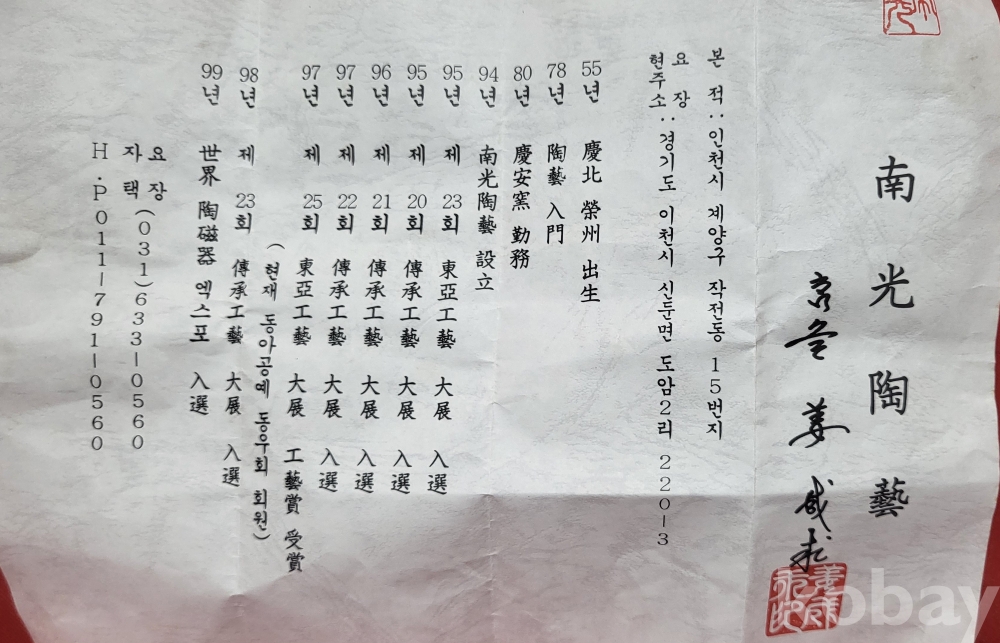 南光陶藝
姜
본 적 : 인천시 계양구 작전동 15번지
요 장
현주소 : 경기도 이천시 신둔면 도암2리 220-3
55년 慶北 榮州 出生
78년 陶藝 入門
80년 慶安窯 勤務
94년 南光陶藝 設立
95년 제 23회 東亞工藝 大展 入選
95년 제 20회 傳承工藝 大展 入選
96년 제 21회 傳承工藝 大展 入選
97년 제 22회 傳承工藝 大展 入選
97년 제 25회 東亞工藝 大展 工藝賞 受賞
(현재 동아공예 동우회 회원)
98년 제 23회 傳承工藝 大展 入選
99년 世界 陶磁器 엑스포 入選
요 장
자 택 (031)633-0560
H.P 011-791-0560
obay